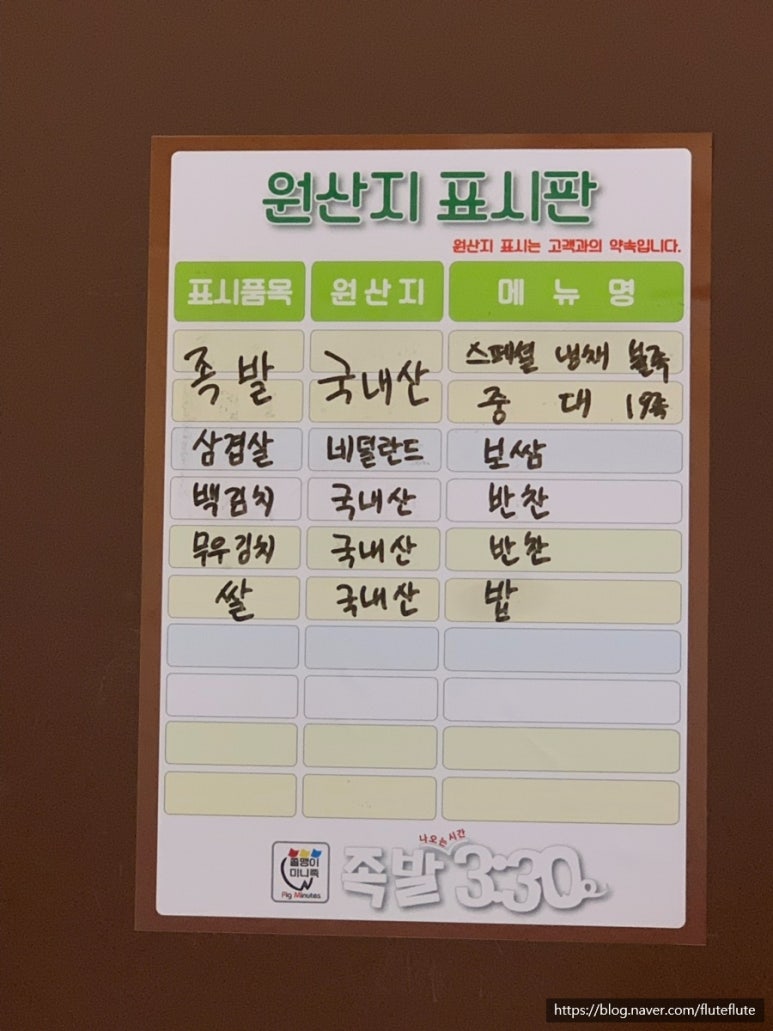 원산지 표시판
원산지 표시는 고객과의 약속입니다.
표시품목 원산지 메뉴명
족발 국내산 스페셜 냉채 불족
중 대 1인족
삼겹살 네덜란드 보쌈
백김치 국내산 반찬
무우김치 국내산 반찬
쌀 국내산 밥
나오는시간
족발 3:30
쫄맹이
미니족
Pig Minutes
https://blog.naver.com/fluteflute